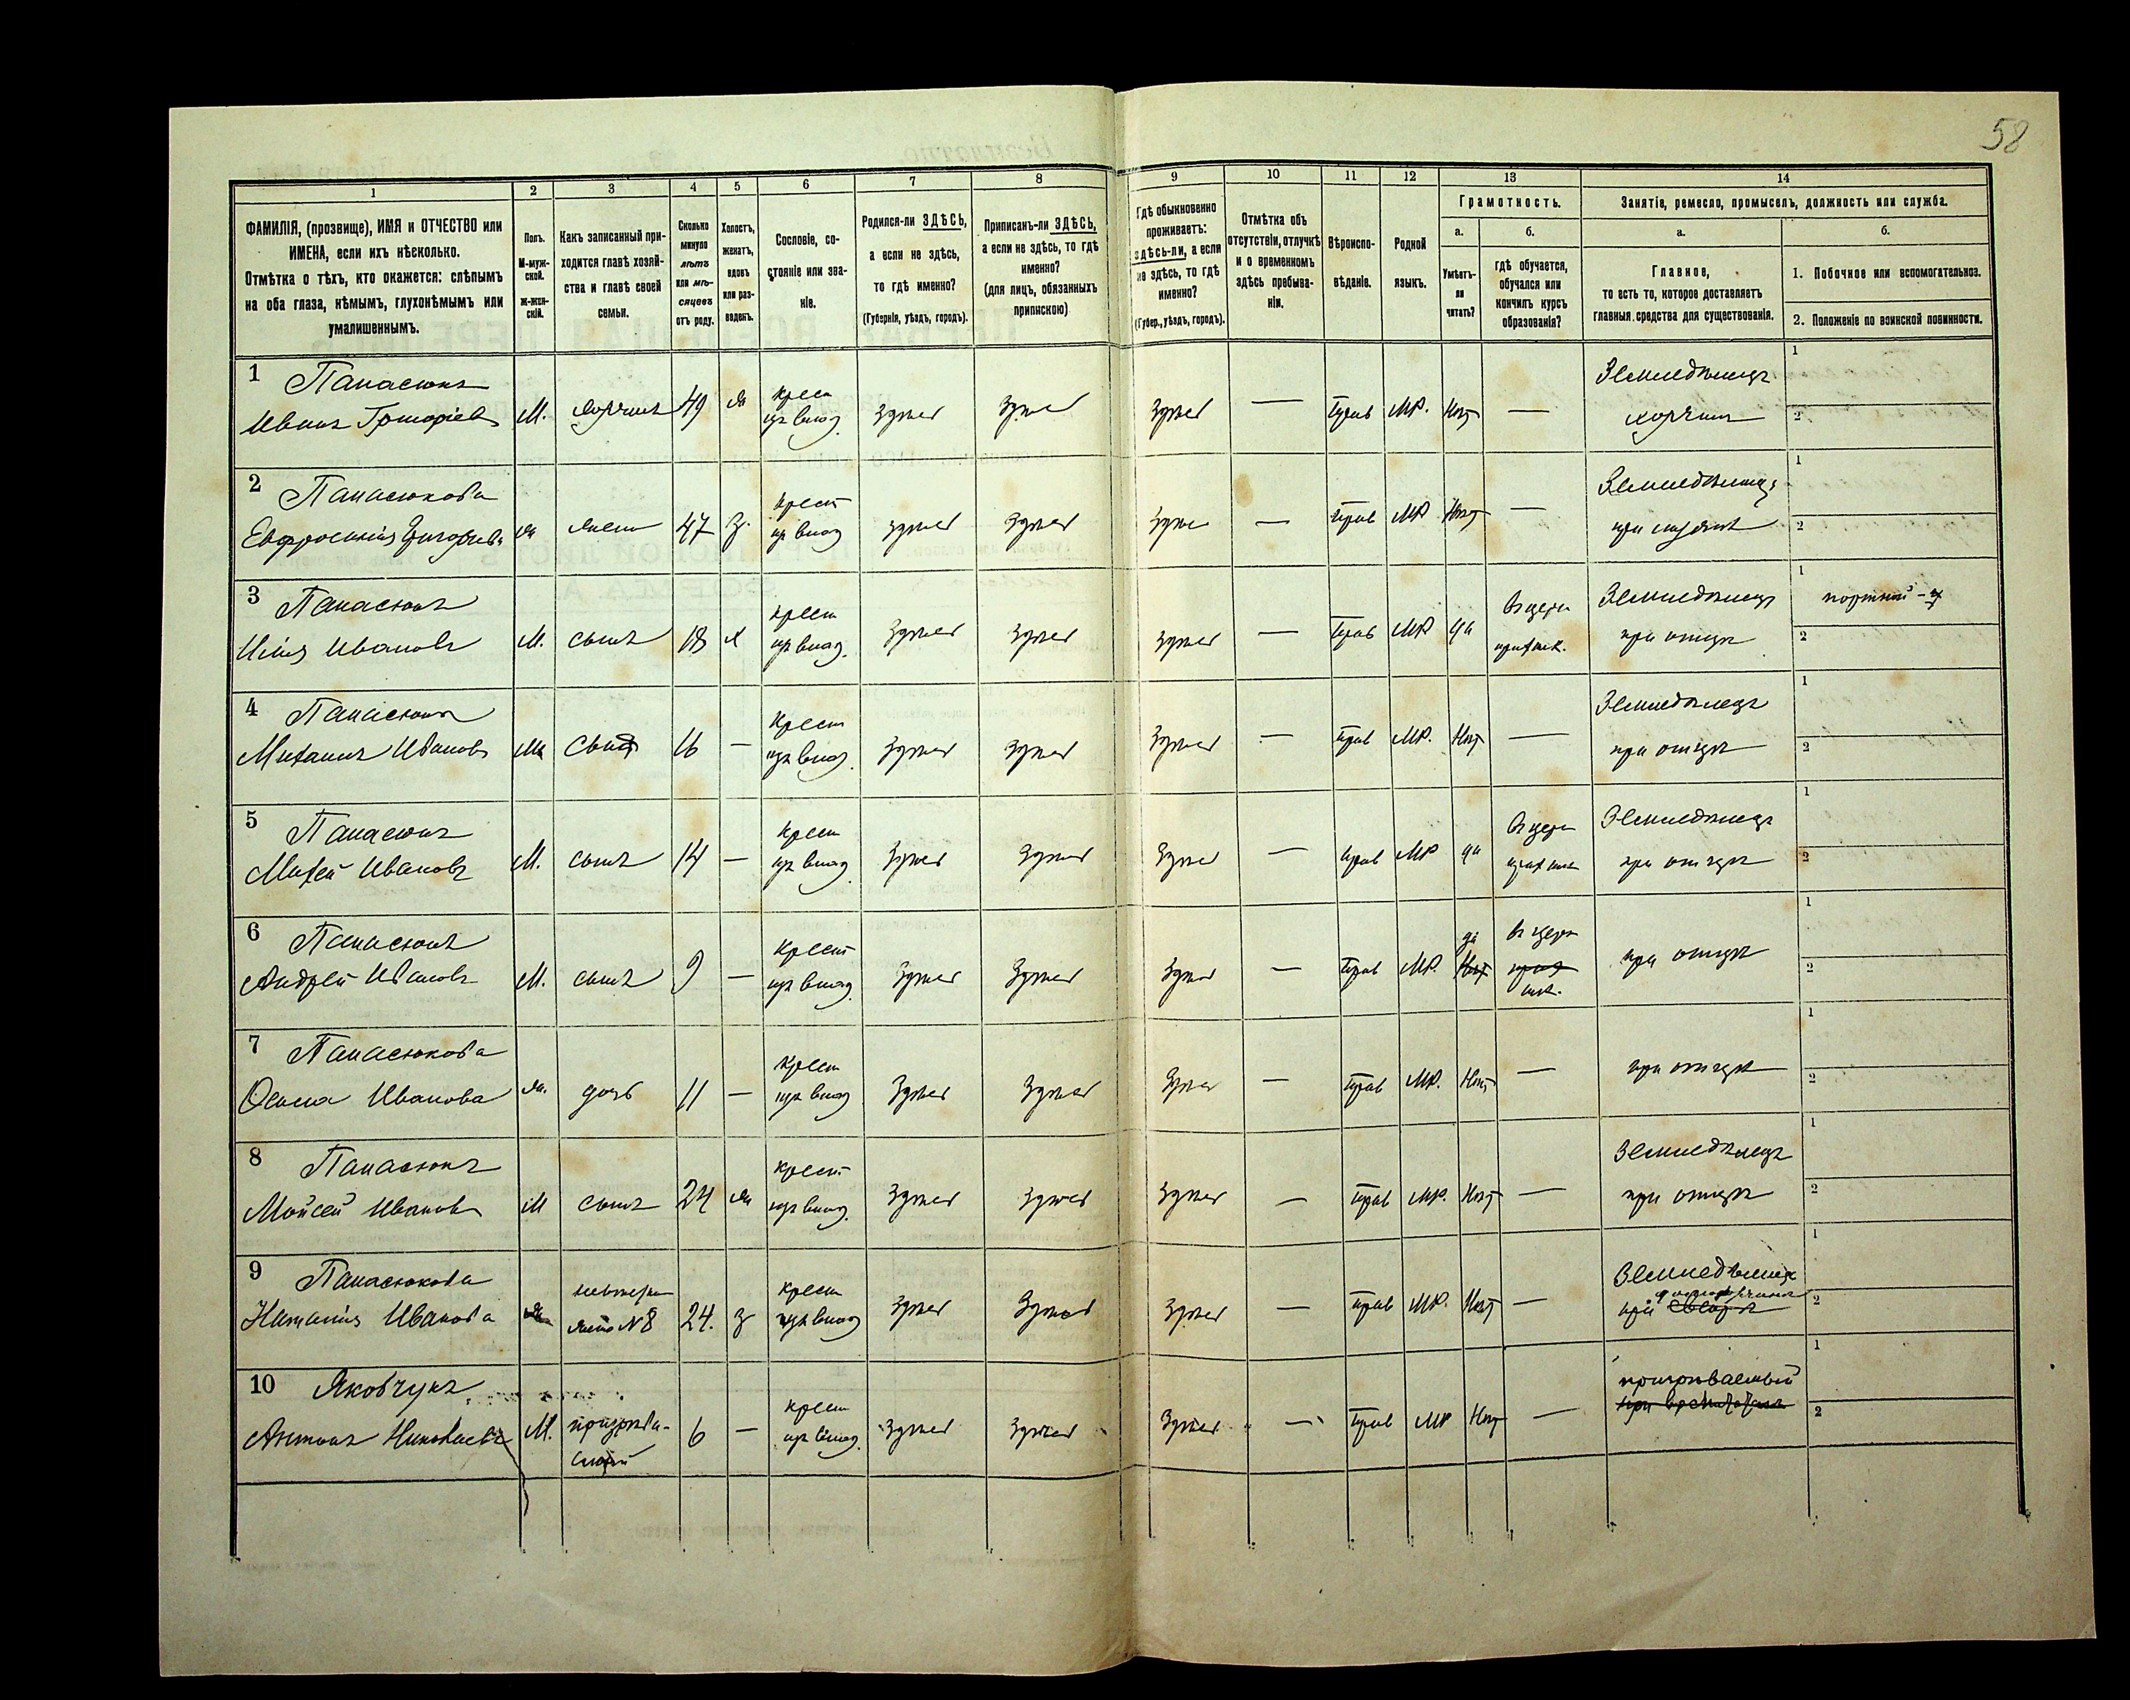 58
1 2 3 4 5 6 7 8 9 10 11 12 13 14
ФАМИЛІЯ, (прозвище), ИМЯ и ОТЧЕСТВО или
ИМЕНА, если ихъ нѣсколько.
Отмѣтка о тѣхъ, кто окажется: слѣпымъ
на оба глаза, нѣмымъ, глухонѣмымъ или
умалишеннымъ.
Полъ.
М-муж-
ской.
ж-жен-
скій.
Какъ записанный при-
ходится главѣ хозяй-
ства и главѣ своей
семьи.
Сколько
минуло
лѣтъ
или мѣ-
сяцевъ
отъ роду.
Холостъ,
женатъ,
вдовъ
или раз-
веденъ.
Сословіе, со-
стояніе или зва-
ніе.
Родился-ли ЗДѢСЬ,
а если не здѣсь,
то гдѣ именно?
(Губернія, уѣздъ, городъ).
Приписанъ-ли ЗДѢСЬ,
а если не здѣсь, то гдѣ
именно?
(для лицъ, обязанныхъ
припискою)
Гдѣ обыкновенно
проживаетъ:
здѣсь-ли, а если
не здѣсь, то гдѣ
именно?
(Губер., уѣздъ, городъ).
Отмѣтка объ
отсутствіи, отлучкѣ
и о временномъ
здѣсь пребыва-
ніи.
Вѣроиспо-
вѣданіе.
Родной
языкъ.
Грамотность.
а.
Умѣетъ-
ли
читать?
б.
гдѣ обучается,
обучался или
кончилъ курсъ
образованія?
Занятіе, ремесло, промыселъ, должность или служба.
а.
Главное,
то есть то, которое доставляетъ
главныя средства для существованія.
б.
1. Побочное или вспомогательное.
2. Положеніе по воинской повинности.
1 Панасюкъ крест Земледѣлецъ 1
Иванъ Григоріевъ М. хозяинъ 49 ж из влад. здѣсь здѣсь здѣсь — Прав МР. Нѣт — хозяинъ 2
2 Панасюкова крест Земледѣлецъ 1
Евфросинія Григорьева ж жена 47 з. из влад здѣсь здѣсь здѣсь — прав МР Нѣт — при мужѣ 2
3 Панасюкъ крест Въ церк Земледѣлецъ 1 портной
Илія Ивановъ М. сынъ 18 х из влад. здѣсь здѣсь здѣсь — Прав МР да прих шк. при отцѣ 2
4 Панасюкъ Крест Земледѣлецъ 1
Михаилъ Ивановъ М сынъ 16 — из влад. здѣсь здѣсь здѣсь — прав МР. Нѣт — при отцѣ 2
5 Панасюкъ Крест Въ церк Земледѣлецъ 1
Михей Ивановъ М. сынъ 14 — из влад. здѣсь здѣсь здѣсь — прав МР да прих шк при отцѣ 2
6 Панасюкъ Крест да Въ церк 1
Андрей Ивановъ М. сынъ 9 — из влад. здѣсь здѣсь здѣсь — Прав МР. Нѣт прих при отцѣ 2
шк.
7 Панасюкова Крест 1
Ивanова ж. дочь 11 — из влад здѣсь здѣсь здѣсь — Прав МР. Нѣт — при отцѣ 2
8 Панасюкъ крест Земледѣлецъ 1
Мойсей Ивановъ М сынъ 24 ж из влад. здѣсь здѣсь здѣсь — Прав МР. Нѣт — при отцѣ 2
9 Панасюкова невѣстка крест Земледѣлецъ 1
Наталія Иванова жена №8 24. з из влад здѣсь здѣсь здѣсь — прав МР. Нѣт — при свекрѣ 2
10 Яковчукъ крест призрѣваемый 1
Антонъ Николаевъ М. призрѣва- 6 — из влад. здѣсь здѣсь здѣсь — Прав МР Нѣт — 2
емый